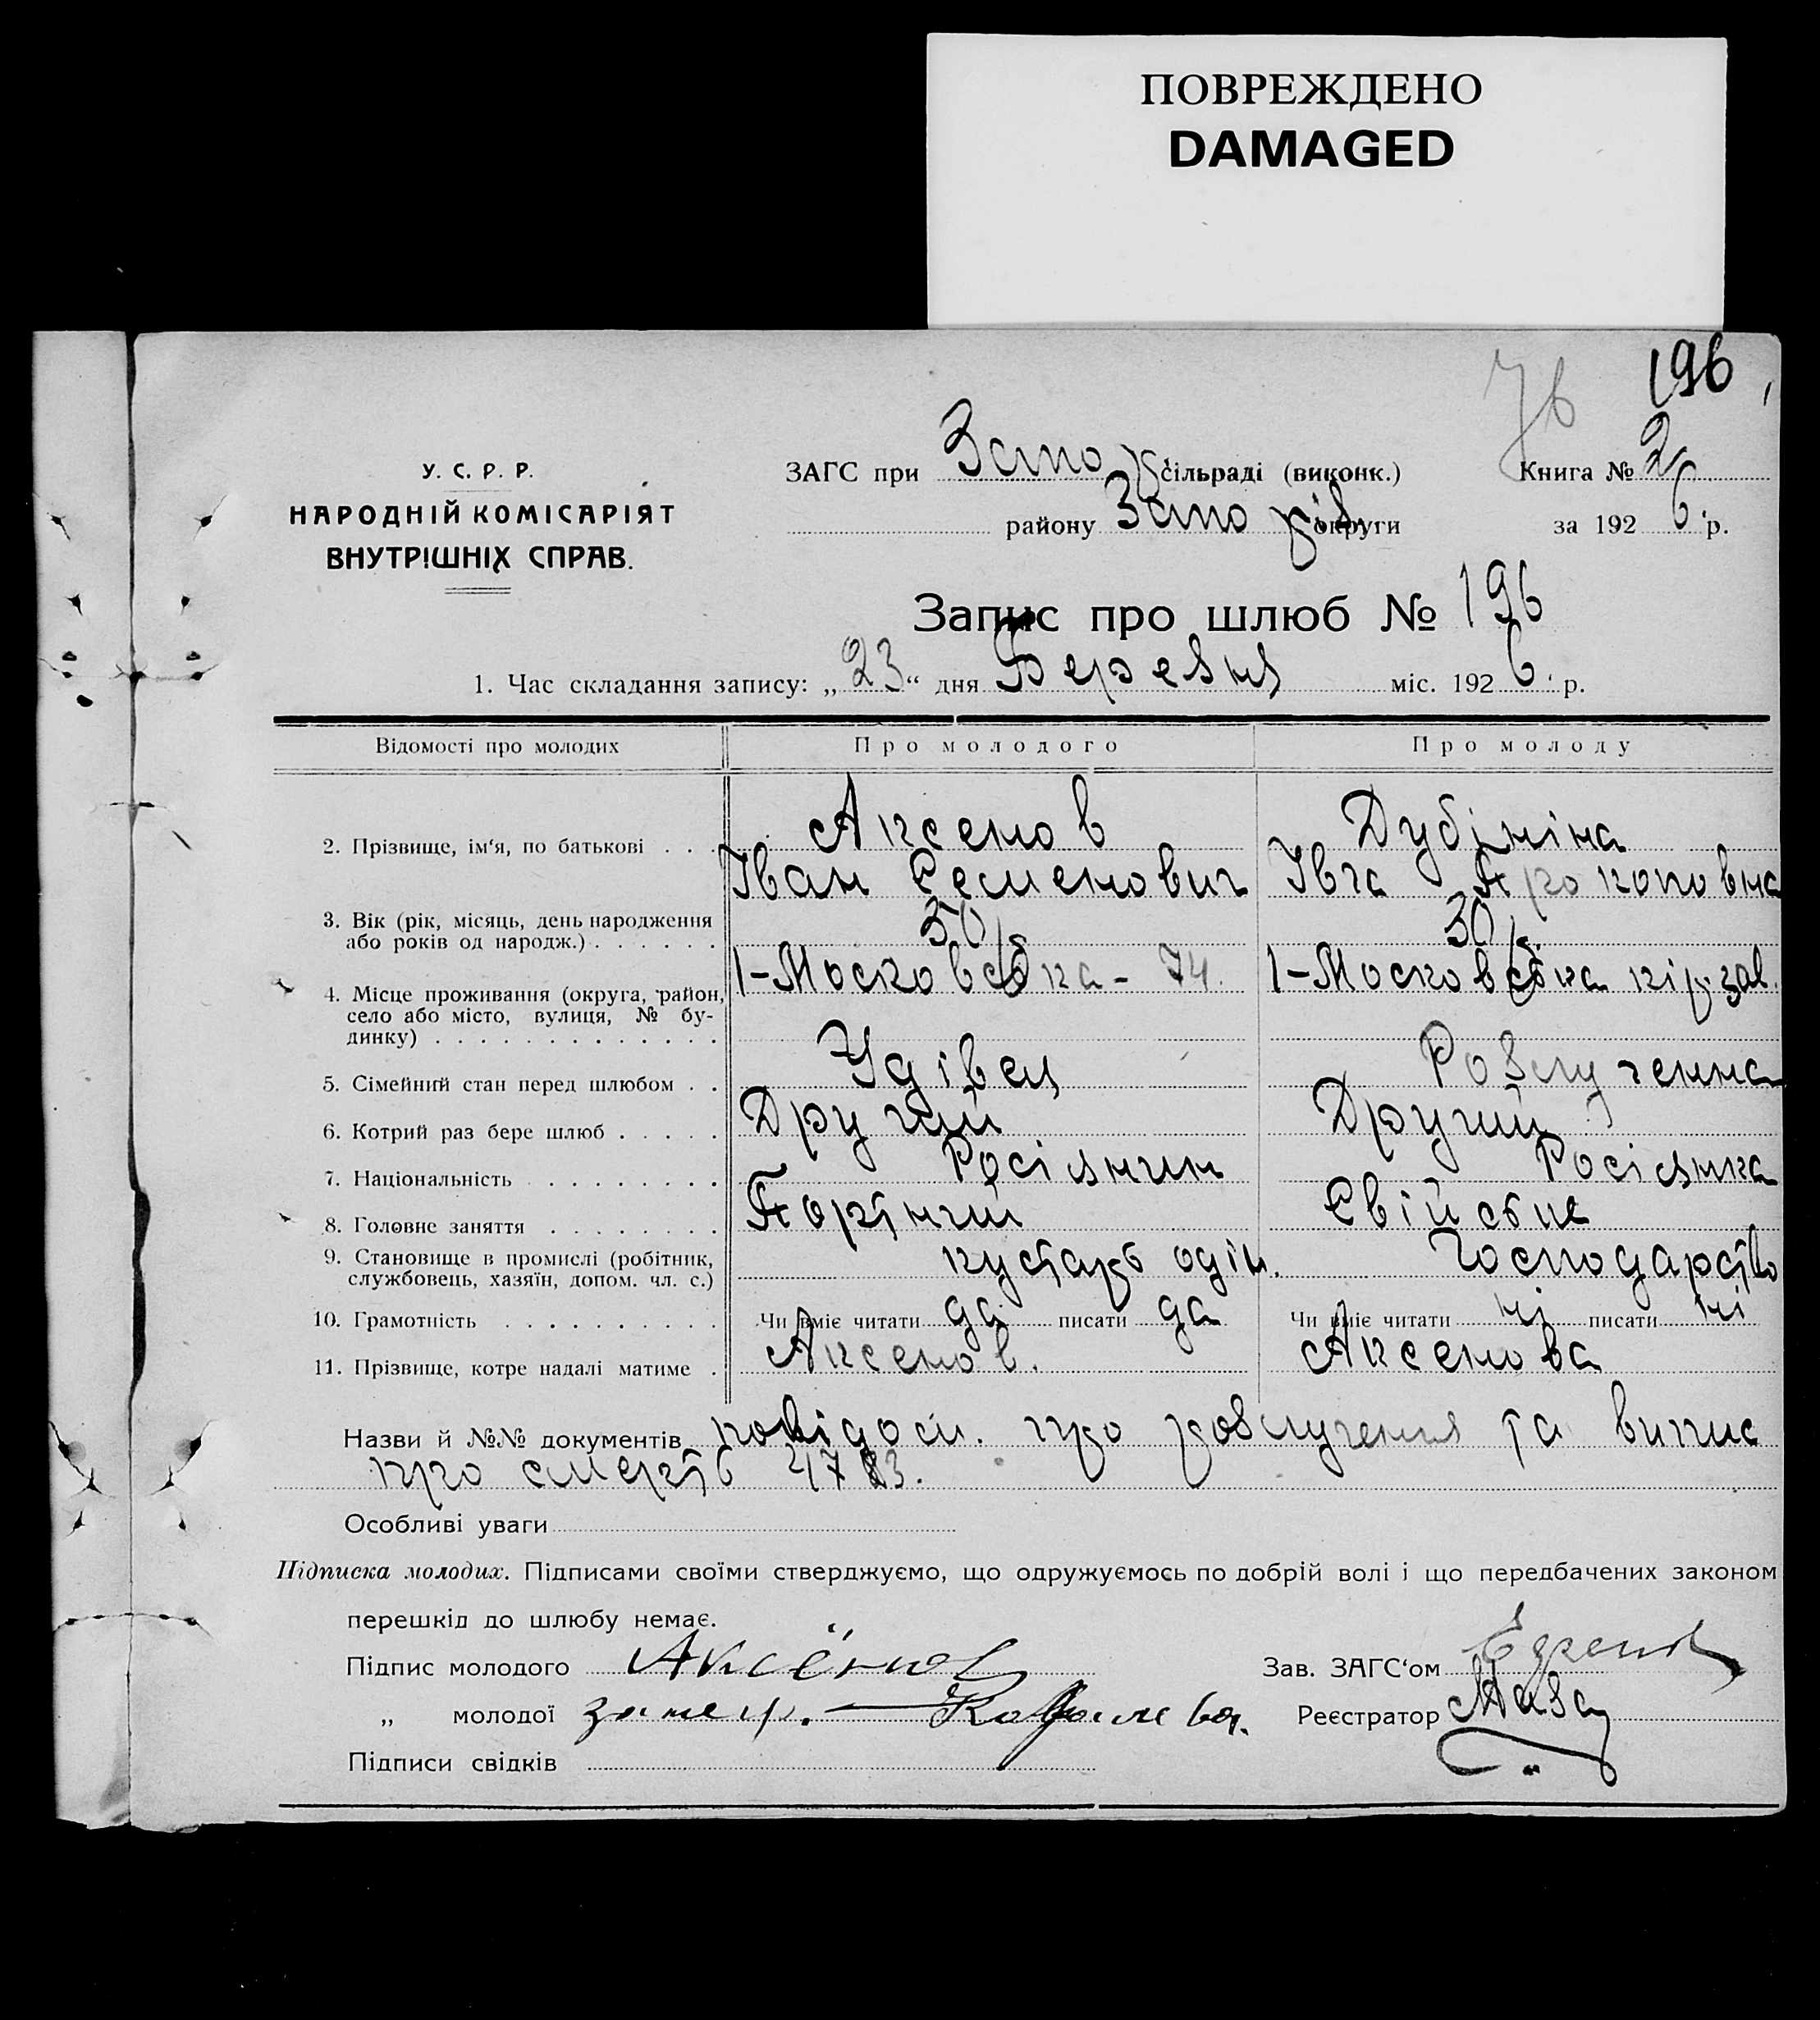 ПОВРЕЖДЕНО
DAMAGED
196
76
У. С. Р. Р.
НАРОДНІЙ КОМІСАРІЯТ
ВНУТРІШНІХ СПРАВ.
ЗАГС при Запор сільраді (виконк.) Книга № 2
району Запоріз округи за 1926 р.
Запис про шлюб № 196
1. Час складання запису: „23“ дня Березня міс. 1926 р.
Відомості про молодих Про молодого Про молоду
2. Прізвище, ім'я, по батькові . . . Аксенов Дубініна
Іван Семенович Івга Прокоповна
3. Вік (рік, місяць, день народження
або років од народж.) . . . . . . 50 р 30 р
4. Місце проживання (округа, район, 1-Московська - 74. 1-Московська кір. зав.
село або місто, вулиця, № бу-
динку) . . . . . . . . . . . . .
5. Сімейний стан перед шлюбом . . Удівец Розлученна
6. Котрий раз бере шлюб . . . . . Другий Другий
7. Національність . . . . . . . . Росіянин Росіянка
8. Головне заняття . . . . . . . . Портний Свійське
9. Становище в промислі (робітник, кустарь один. Господарство
службовець, хазяїн, допом. чл. с.)
10. Грамотність . . . . . . . . . . Чи вміє читати да писати да Чи вміє читати ні писати ні
11. Прізвище, котре надалі матиме . Аксенов. Аксенова
Назви й №№ документів повідом. про розлучення та випис
про смерть
Особливі уваги
Підписка молодих. Підписами своїми стверджуємо, що одружуємось по добрій волі і що передбачених законом
перешкід до шлюбу немає.
Підпис молодого Аксёнов Зав. ЗАГС'ом
„ молодої за негр. Реєстратор
Підписи свідків